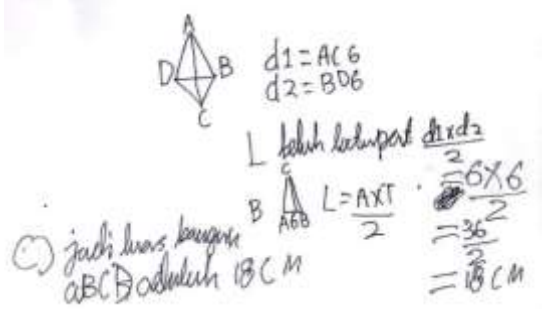 A
D B
C
d1 = AC 6
d2 = BD 6
L belah ketupat d1xd2
2
C
B A6B L = AXT
2
= 6X6
2
= 36
2
= 18 CM
C) jadi luas bangun
ABCD adalah 18 CM